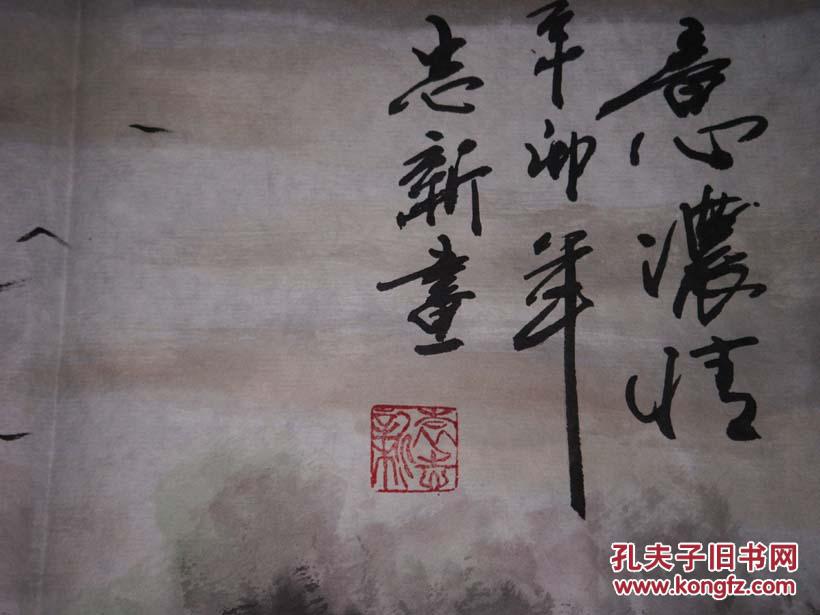 意濃情
辛卯年
志新畫
孔夫子旧书网
www.kongfz.com